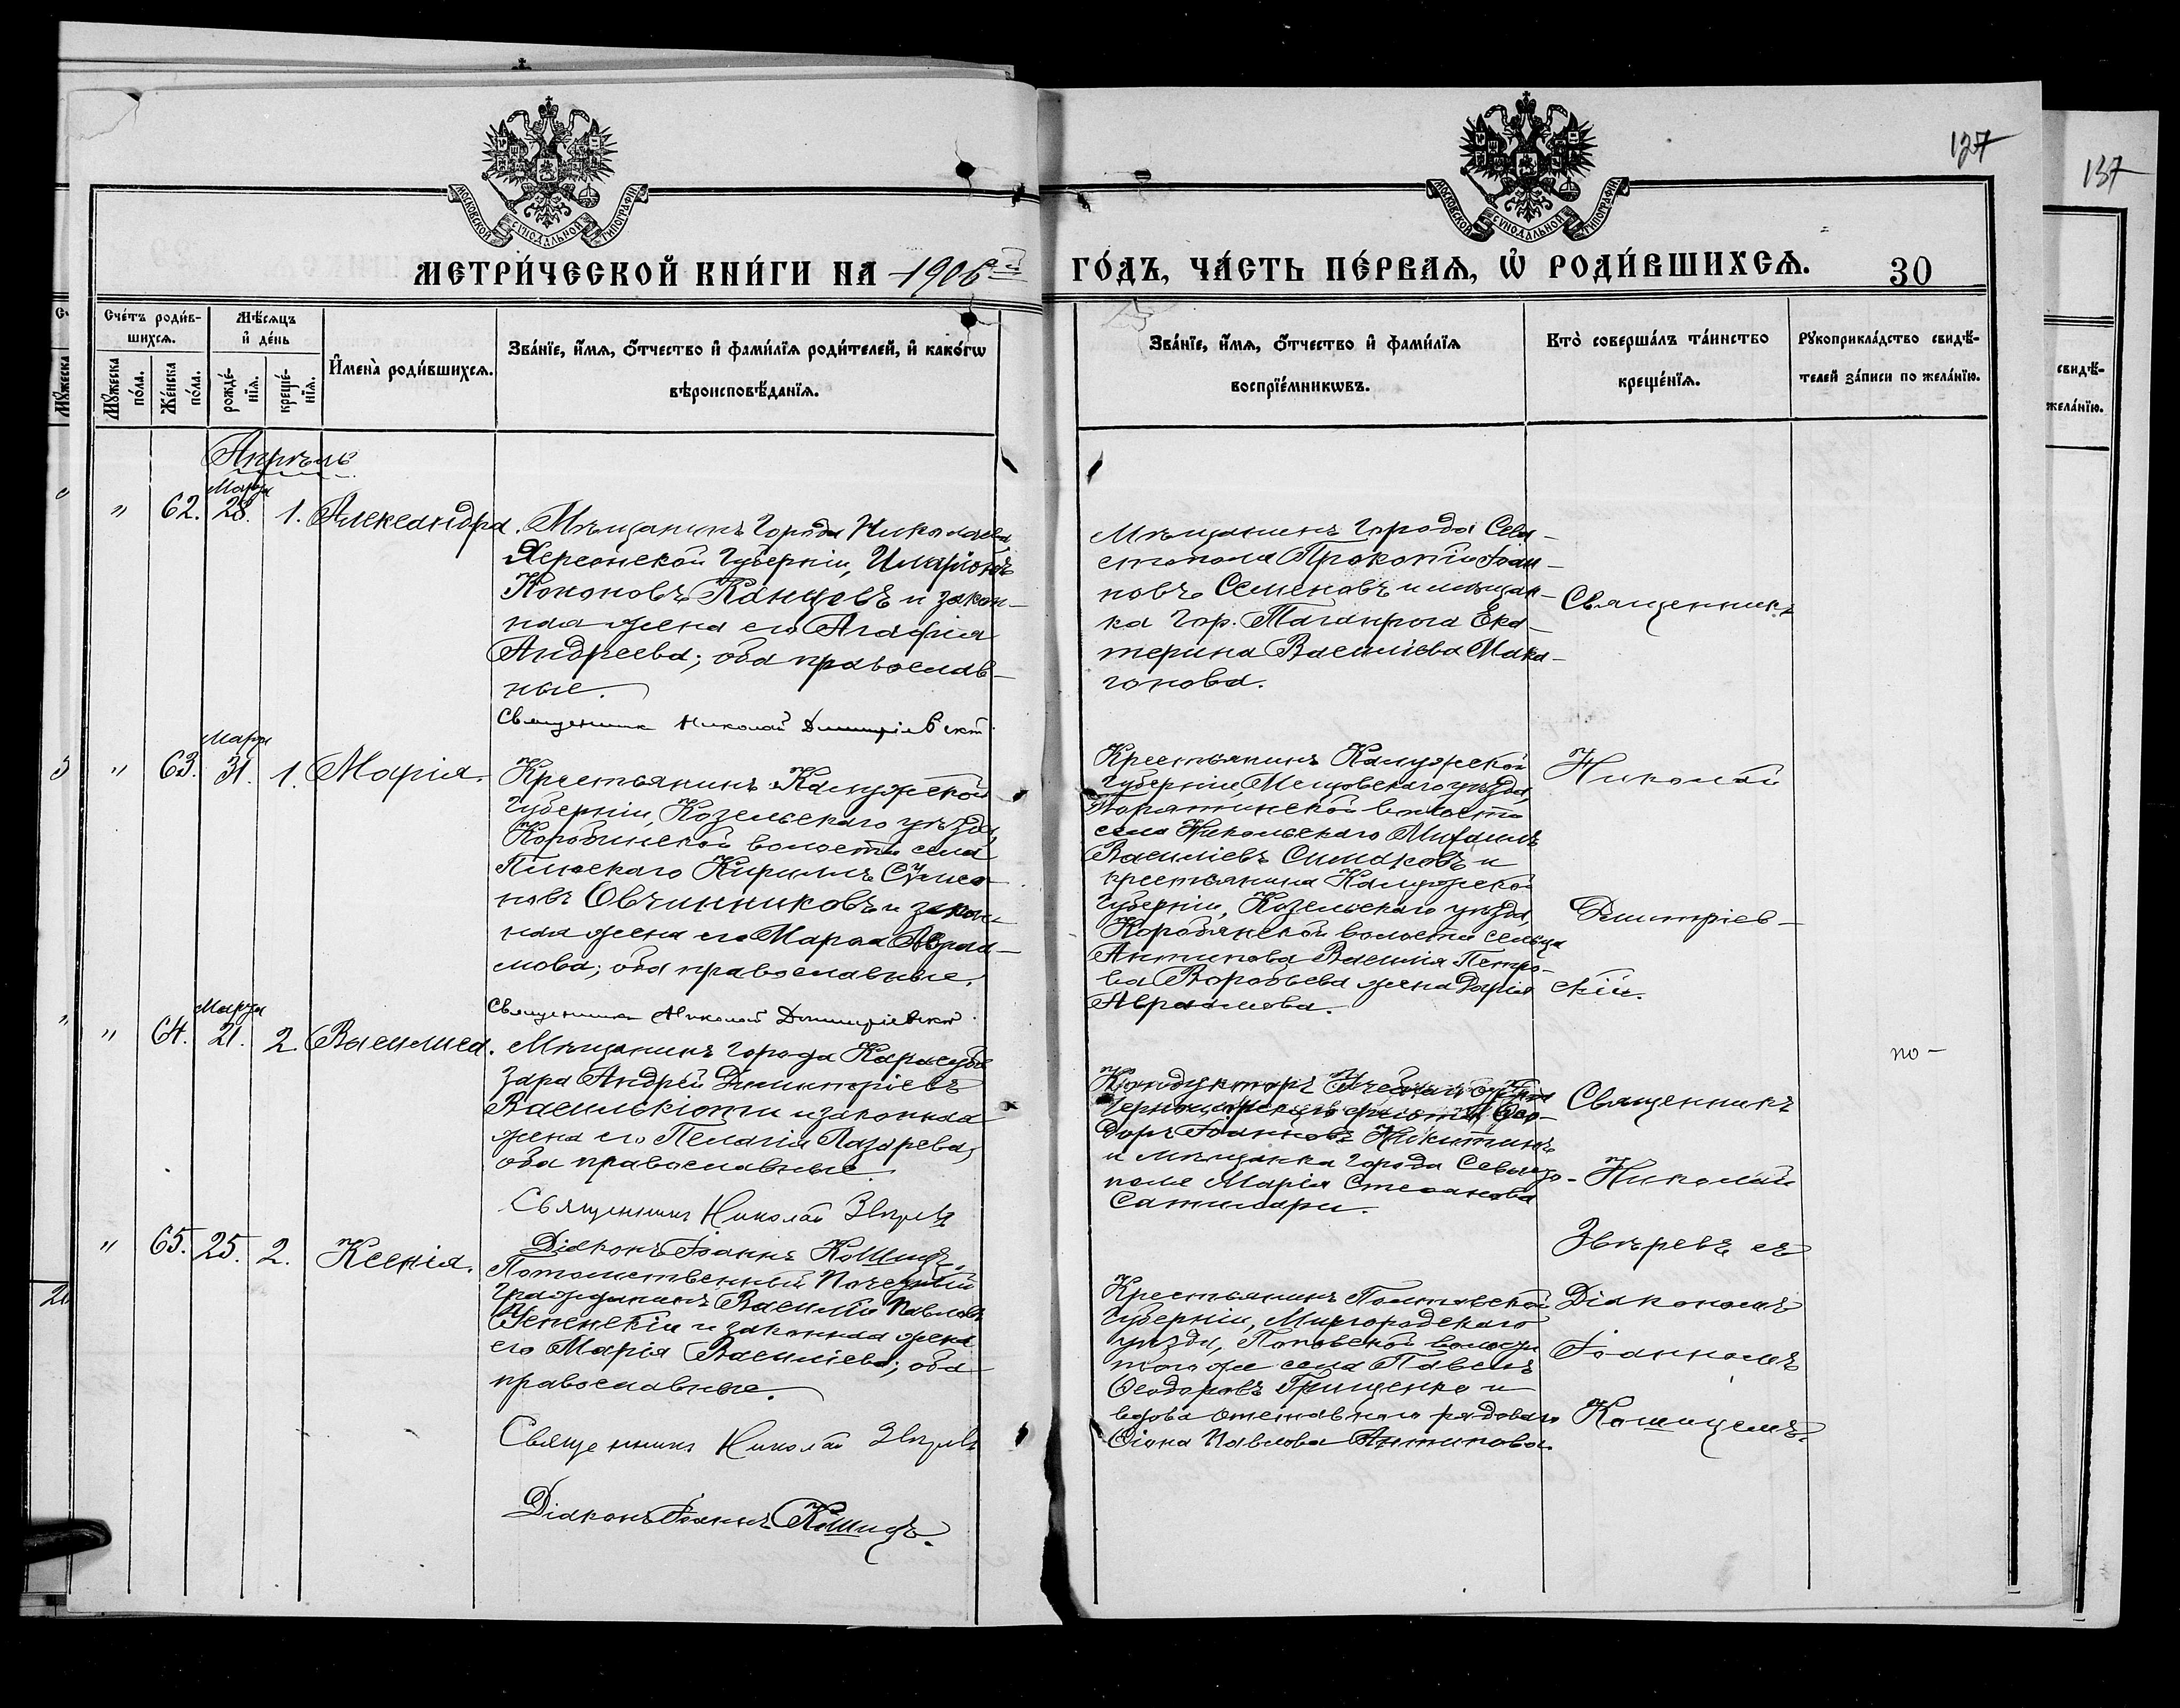 127
137
МОСКОВСКОЙ СѴНОДАЛЬНОЙ ТИПОГРАФІИ
МОСКОВСКОЙ СѴНОДАЛЬНОЙ ТИПОГРАФІИ
МЕТРИ́ЧЕСКОЙ КНИ́ГИ НА 1906й
ГО́ДЪ, ЧА́СТЬ ПЕ́РВАЯ, Ѡ҆ РОДИ́ВШИХСѦ.
30
Сче́тъ роди́в-
шихсѧ.
Мꙋ́жеска по́ла.
Же́нска по́ла.
Мѣ́сѧцъ
и҆ де́нь
рожде́-
нїѧ.
креще́-
нїѧ.
И҆мена̀ роди́вшихсѧ.
Зва́нїе, и҆́мѧ, ѻ҆́тчество и҆ фами́лїѧ роди́телей, и҆ како́гѡ
вѣроисповѣ́данїѧ.
Зва́нїе, и҆́мѧ, ѻ҆́тчество и҆ фами́лїѧ
воспрїе́мникѡвъ.
Кто̀ соверша́лъ та́инство
креще́нїѧ.
Рꙋкоприкла́дство свидѣ́-
телей за́писи по жела́нїю.
свидѣ́-
жела́нїю.
Апрѣль
Марта
" 62. 28. 1. Александра.
Мѣщанинъ города Николаева
Херсонской губерніи, Иларіонъ
Кононовъ Канцевъ и закон-
ная жена его Агафія
Андреева; оба православ-
ные.
Священникъ Николай Димитріевскій.
Мѣщанинъ города Сева-
стополя Прокопій Іоан-
новъ Семеновъ и мѣщан-
ка гор. Таганрога Ека-
терина Васильева Мака-
гонова.
Священникъ
Марта
" 63. 31. 1. Марія.
Крестьянинъ Калужской
губерніи, Козельскаго уѣзда,
Коробинской волости села
Кириллъ
новъ Овчинниковъ и закон-
ная жена его Марѳа Авраа-
мова; оба православные.
Священникъ Николай Димитріевскій.
Крестьянинъ Калужской
губерніи, Мещовскаго уѣзда,
волости
села Никольскаго Михаилъ
Василіевъ Симаковъ и
крестьянина Калужской
губерніи, Козельскаго уѣзда,
волости сельца
Антипова Василія Петро-
ва Воробьева жена Дарія
Авраамова.
Николай
Димитріев-
скій.
Марта
" 64. 21. 2. Василиса.
Мѣщанинъ города Карасуба-
зара Андрей Димитріевъ
Василькіоти и законная
жена его Пелагія Лазарева,
оба православные.
Священникъ Николай Звѣревъ
Кондукторъ
Черноморскаго флота Ѳео-
доръ Іоанновъ Никитинъ
и мѣщанка города Севасто-
поля Марія Стефанова
Священникъ
Николай
Звѣревъ съ
по-
" 65. 25. 2. Ксенія.
Діаконъ Іоаннъ Кошицъ.
Потомственный почетный
гражданинъ Василій Павловъ
Успенскій и законная жена
его Марія Василіева; оба
православные.
Священникъ Николай Звѣревъ
Діаконъ Іоаннъ Кошицъ.
Крестьянинъ Полтавской
губерніи, Миргородскаго
уѣзда, Поповской волости
того же села Павелъ
Ѳеодоровъ Грищенко и
вдова отставного рядового
Павлова Антипова.
Діакономъ
Іоанномъ
Кошицемъ.